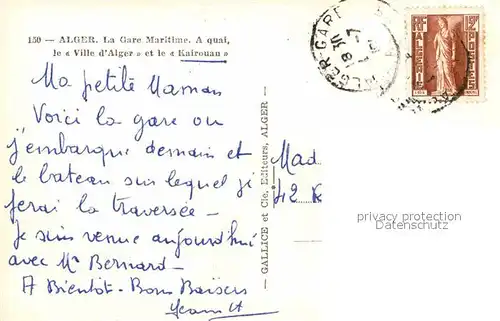 150 — ALGER. La Gare Maritime. A quai,
le « Ville d'Alger » et le « Kairouan »
Ma petite Maman
Voici la gare ou
j'embarque demain et
le bateau sur lequel je
ferai la traversée —
Je suis venue aujourd'hui
avec Mr Bernard —
A Bientôt - Bons Baisers
— GALLICE et Cie, Editeurs, ALGER —
ALGER GARE
18 30
ALGERIE
Mad
42
privacy protection
Datenschutz